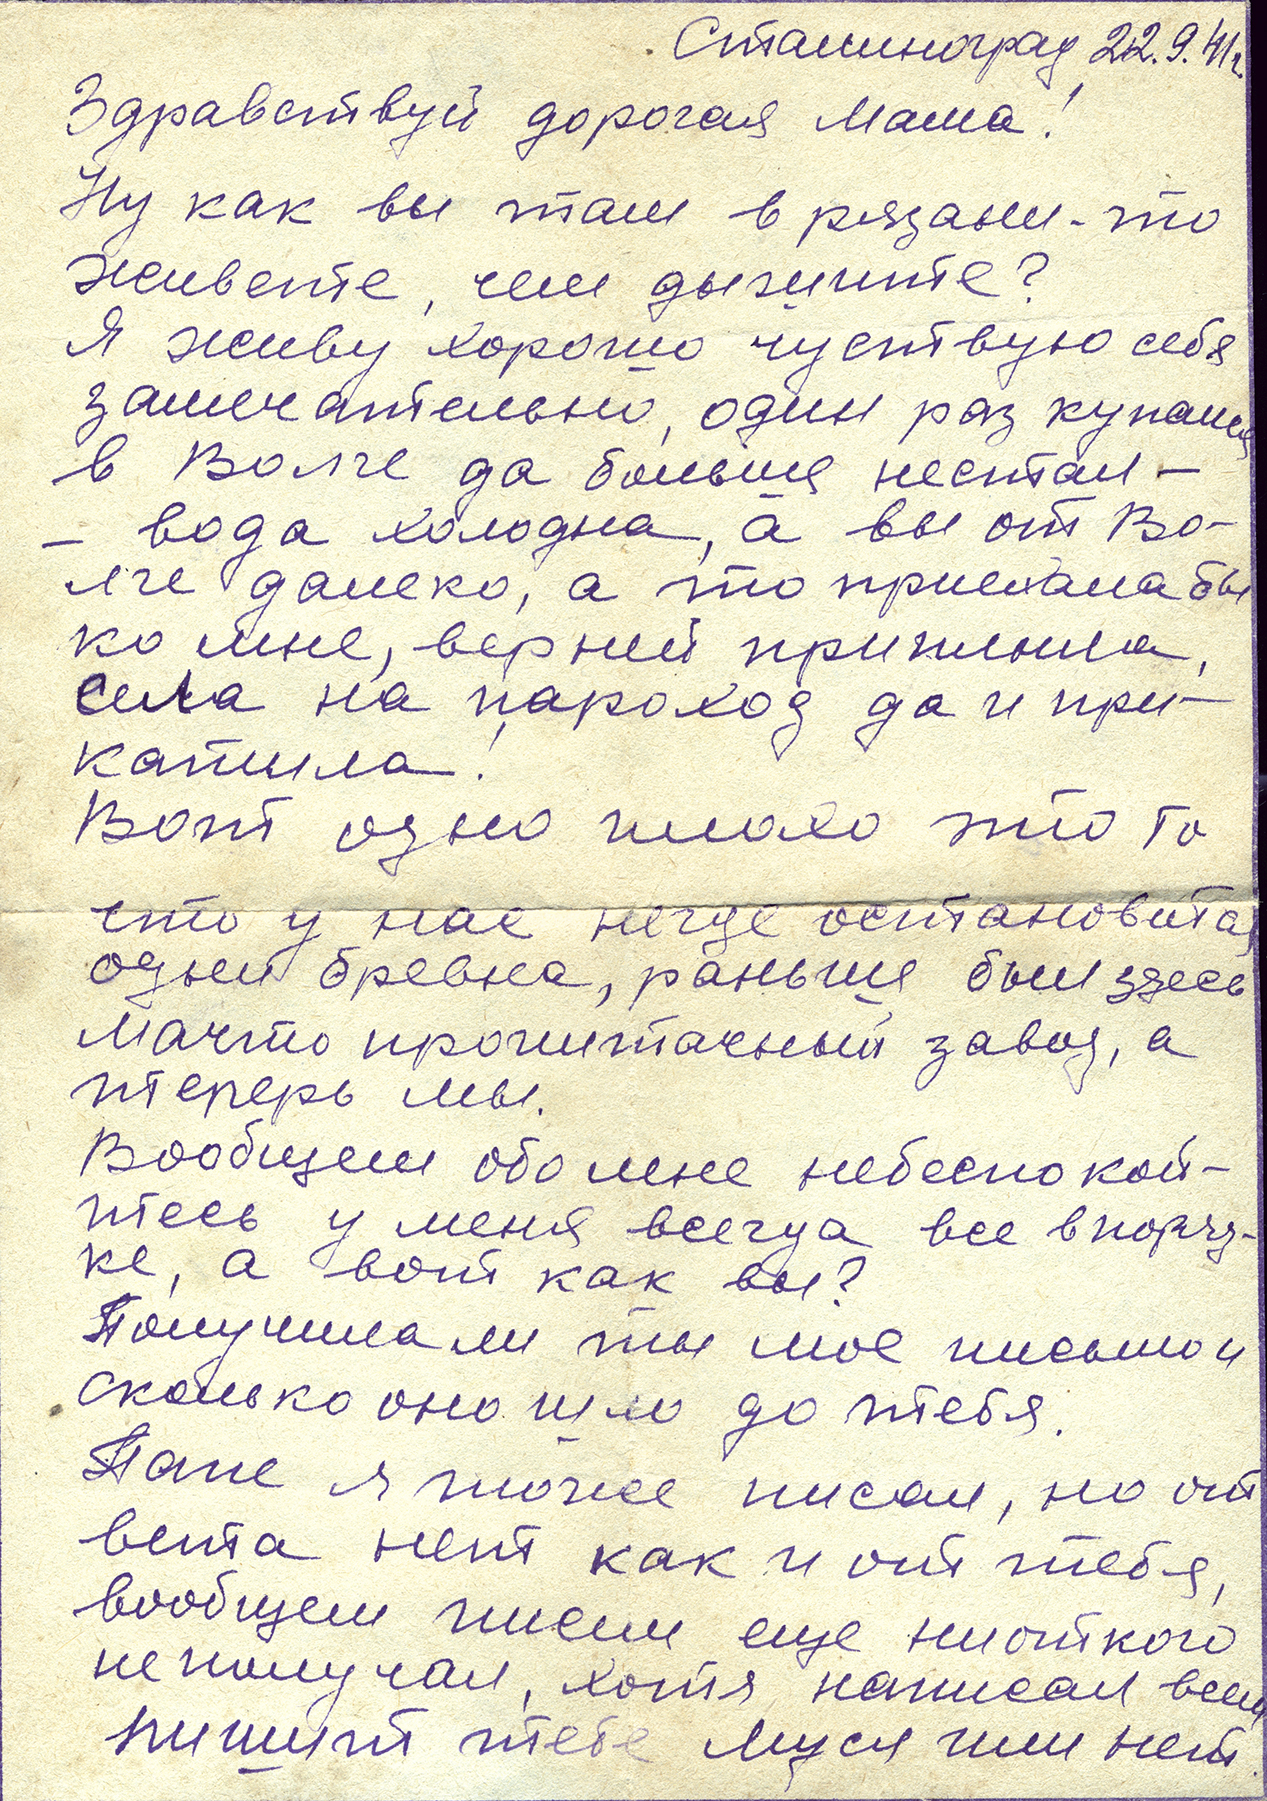 Сталиноград 22.9.41г.
Здравствуй дорогая Мама!
Ну как вы там в рязани-то
живете, чем дышите?
Я живу хорошо чуствую себя
замечательно, один раз купался
в Волге да больше нестал -
- вода холодна, а вы от Во-
лге далеко, а то приехала бы
ко мне, верней приплыла,
села на пароход да и при-
катила!
Вот одно плохо это то
что у нас негде остановится
одни бревна, раньше был здесь
Мачто пропиточный завод, а
теперь мы.
Вообщем обо мне небеспокой-
тесь у меня всегда все впоряд-
ке, а вот как вы?
Получила ли ты мое письмо и
сколько оно шло до тебя.
Папе я тоже писал, но от
вета нет как и от тебя,
вообщем писем еще ниоткого
неполучал, хотя написал всем
пишит тебе Муся или нет.